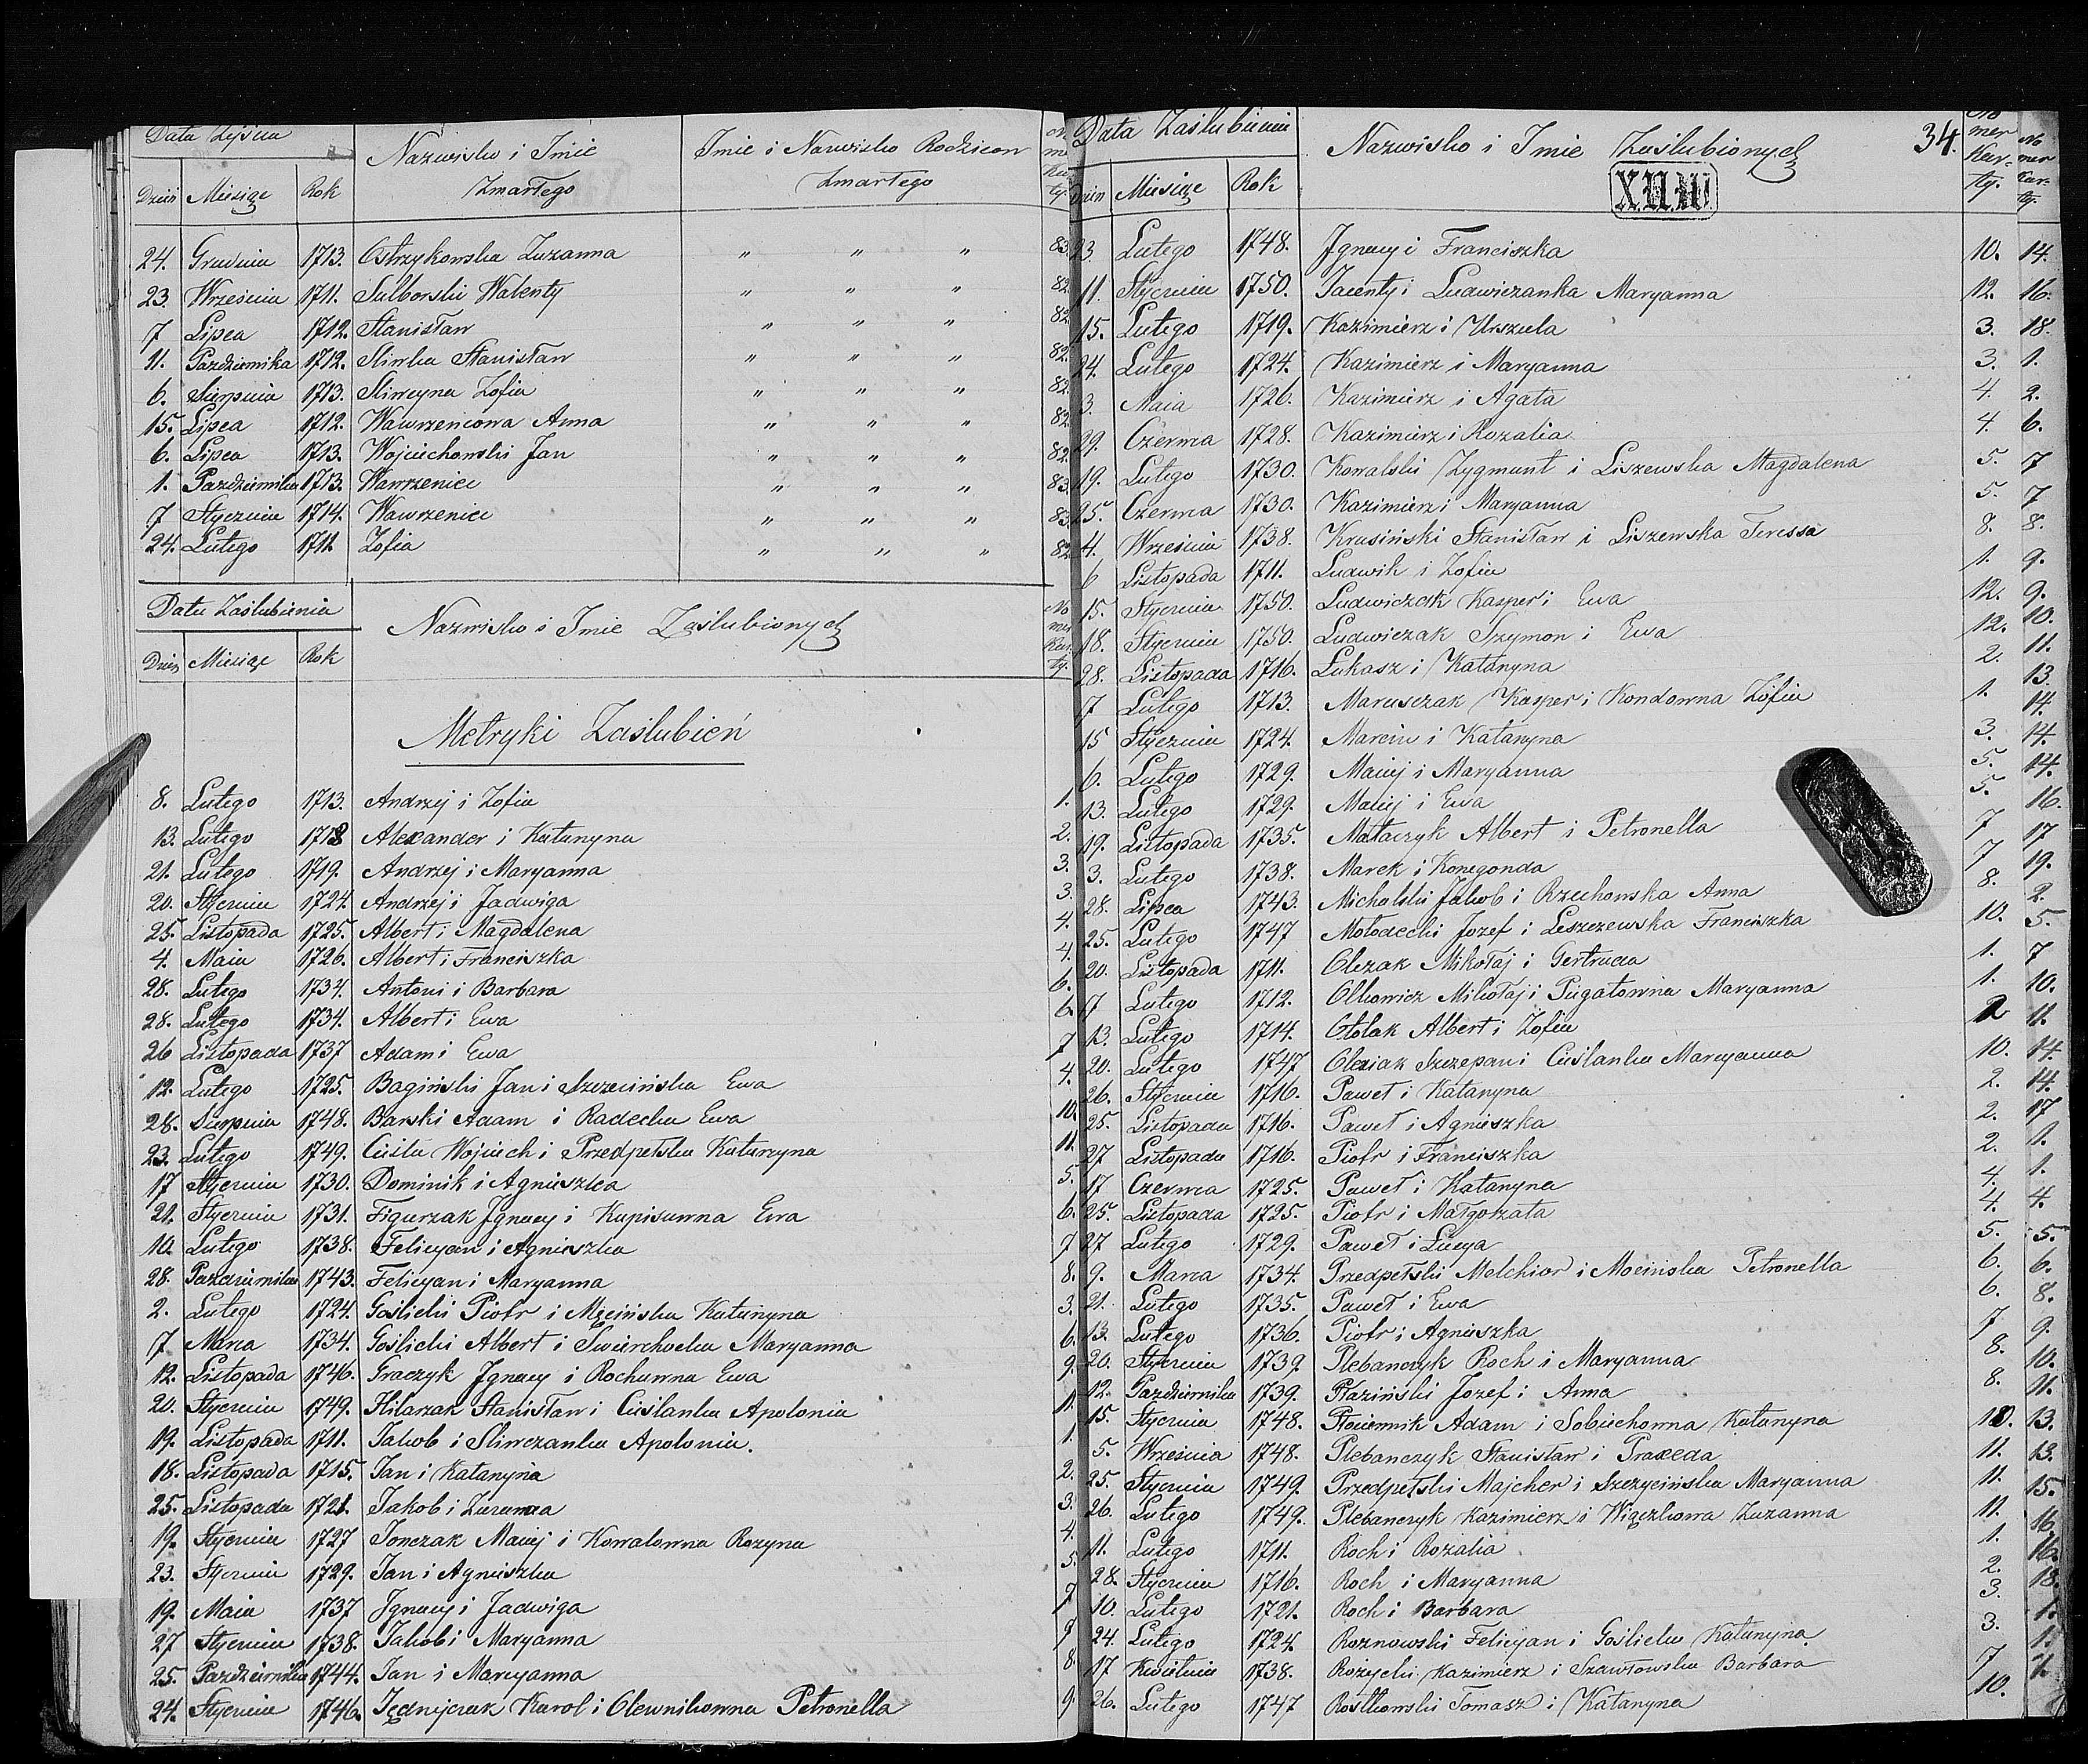 Data Zejścia
Nazwisko i Imie
Zmarłego
Imie i Nazwisko Rodziców
Zmarłego
Dzień Miesiąc Rok
24. Grudnia 1713. Ostrzykowska Zuzanna " " " 83.
23. Września 1711. Sulborski Walenty " " " 82.
7 Lipca 1712. Stanisław " " " 82.
11. Pazdziernika 1712. Sliwka Stanisław " " " 82.
6. Sierpnia 1713. Sliwcyna Zofia " " " 82.
15. Lipca 1712. Wawrzencowa Anna " " " 82.
6. Lipca 1713. Wojciechowski Jan " " " 82.
1. Pazdziernika 1713. Wawrzeniec " " " 83.
7 Stycznia 1714. Wawrzeniec " " " 83.
24. Lutego 1711. Zofia " " " 82
Data Zaślubienia
Nazwisko i Imie Zaślubionych
Dzień Miesiąc Rok
Metryki Zaślubień
8. Lutego 1713. Andrzej i Zofia 1.
13. Lutego 1718 Alexander i Katarzyna 2.
21. Lutego 1719. Andrzej i Maryanna 3.
20. Stycznia 1724. Andrzej i Jadwiga 3.
25. Listopada 1725. Albert i Magdalena 4.
4. Maia 1726. Albert i Franciszka 4.
28. Lutego 1734. Antoni i Barbara 6.
28. Lutego 1734. Albert i Ewa 6.
26 Listopada 1737 Adam i Ewa 7
12. Lutego 1725. Bagiński Jan i Szczecińska Ewa 4.
28. Sierpnia 1748. Barski Adam i Radecka Ewa 10.
23. Lutego 1749. Cieśla Wojciech i Przedpełska Katarzyna 11.
17 Stycznia 1730. Dominik i Agnieszka 5.
21. Stycznia 1731. Figurzak Jgnacy i Kupisowna Ewa 6.
10. Lutego 1738. Felicyan i Agnieszka 7
28. Pazdziernika 1743. Felicyan i Maryanna 8.
2. Lutego 1724. Goślicki Piotr i Męcińska Katarzyna 3.
7 Marca 1734. Goślicki Albert i Swierchocka Maryanna 6.
12. Listopada 1746. Graczyk Jgnacy i Rochowna Ewa 9.
20. Stycznia 1749. Hilarzak Stanisław i Cieślanka Apolonia 11.
19. Listopada 1711. Jakob i Sliwczanka Apolonia. 1.
18. Listopada 1715. Jan i Katarzyna 2.
25. Listopada 1721. Jakob i Zuzanna 3.
19. Stycznia 1727 Jonczak Maciej i Kowalowna Rozyna 4.
23. Stycznia 1729. Jan i Agnieszka 5.
19. Maia 1737 Jgnacy i Jadwiga 7
27 Stycznia 1738. Jakob i Maryanna
25. Pazdziernika 1744. Jan i Maryanna 8.
24. Stycznia 1746. Jędrzyczak Karol i Olewnikowna Petronella 9.
Data Zaślubienia
Nazwisko i Imie Zaślubionych
34.
Numer Karty.
X.II.W.
Dzień Miesiąc Rok
23. Lutego 1748. Jgnacy i Franciszka 10.
11. Stycznia 1750. Jacenty i Ludwiczanka Maryanna 12.
15. Lutego 1719. Kazimierz i Urszula 3.
24. Lutego 1724. Kazimierz i Maryanna 3.
3. Maia 1726. Kazimierz i Agata 4.
29. Czerwca 1728. Kazimierz i Rozalia 4.
19. Lutego 1730. Kowalski Zygmunt i Liszewska Magdalena 5.
25. Czerwca 1730. Kazimierz i Maryanna 5.
4. Września 1738. Krusiński Stanisław i Liszewska Teressa 8.
6 Listopada 1711. Ludwik i Zofia 1.
15. Stycznia 1750. Ludwiczak Kasper i Ewa 12.
18. Stycznia 1750. Ludwiczak Szymon i Ewa 12.
28. Listopada 1716. Łukasz i Katarzyna 2.
7 Lutego 1713. Marusczak Kasper i Kondowna Zofia 1.
15 Stycznia 1724. Marcin i Katarzyna 3.
6. Lutego 1729. Maciej i Maryanna 5.
13. Lutego 1729. Maciej i Ewa 5.
19. Listopada 1735. Mataczyk Albert i Petronella 7
3. Lutego 1738. Marek i Konegonda 7
28. Lipca 1743. Michalski Jakob i Rzechowska Anna 8.
25. Lutego 1747 Mołodecki Jozef i Leszczewska Franciszka 10.
20. Listopada 1711. Olczak Mikołaj i Gertruda 1.
17 Lutego 1712. Olkowicz Mikołaj i Pugatowna Maryanna 1.
13. Lutego 1714. Otolak Albert i Zofia 2
20. Lutego 1747 Olexiak Szczepan i Cieślanka Maryanna 10.
26. Stycznia 1716. Paweł i Katarzyna 2.
25. Listopada 1716. Paweł i Agnieszka 2.
27 Listopada 1716. Piotr i Franciszka 2.
17 Czerwca 1725. Paweł i Katarzyna 4.
25. Listopada 1725. Piotr i Małgorzata 4.
27 Lutego 1729. Paweł i Łucya 5.
9. Marca 1734. Przedpełski Melchior i Mocińska Petronella 6.
21. Lutego 1735. Paweł i Ewa 6.
13. Lutego 1736. Piotr i Agnieszka 7
20. Stycznia 1739. Plebanczyk Roch i Maryanna 8.
12. Pazdziernika 1739. Płaziński Jozef i Anna 8.
15. Stycznia 1748. Płociennik Adam i Sobiechowna Katarzyna 10.
5. Września 1748. Plebanczyk Stanisław i Praxeda 11.
25. Stycznia 1749. Przedpełski Majcher i Szczycińska Maryanna 11.
26. Lutego 1749. Plebanczyk Kazimierz i Więczkowa Zuzanna 11.
11. Lutego 1711. Roch i Rozalia 1.
28. Stycznia 1716. Roch i Maryanna 2.
10. Lutego 1721. Roch i Barbara 3.
24. Lutego 1724. Roznowski Felicyan i Goślicka Katarzyna 3.
17 Kwietnia 1738. Rożycki Kazimierz i Szawłowska Barbara 7
26. Lutego 1747 Rostkowski Tomasz i Katarzyna 10.